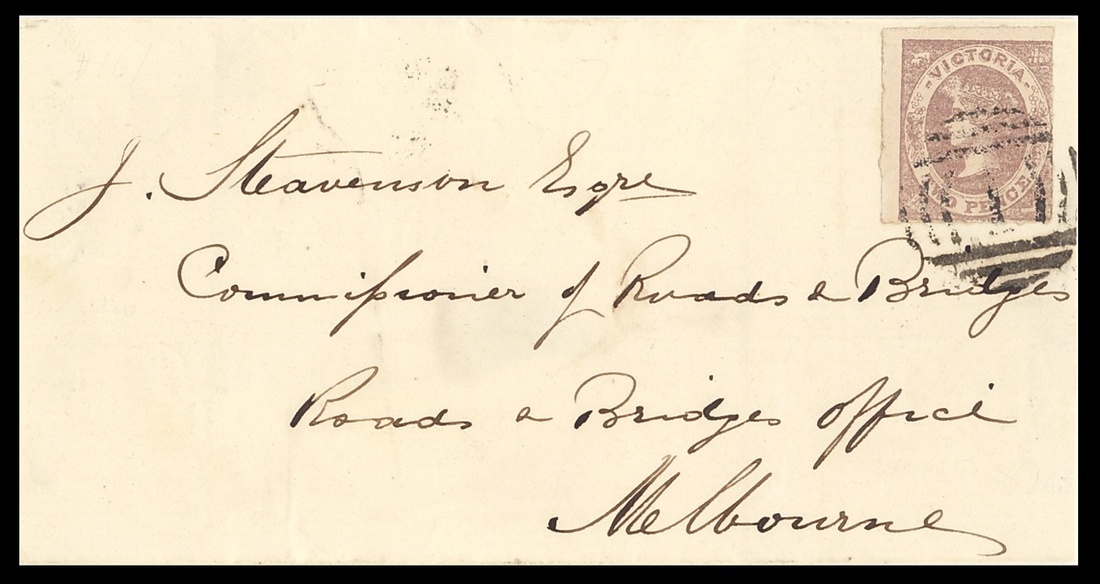 VICTORIA
TWO PENCE
J. Steavenson Esqre
Commissioner of Roads & Bridges
Roads & Bridges Office
Melbourne